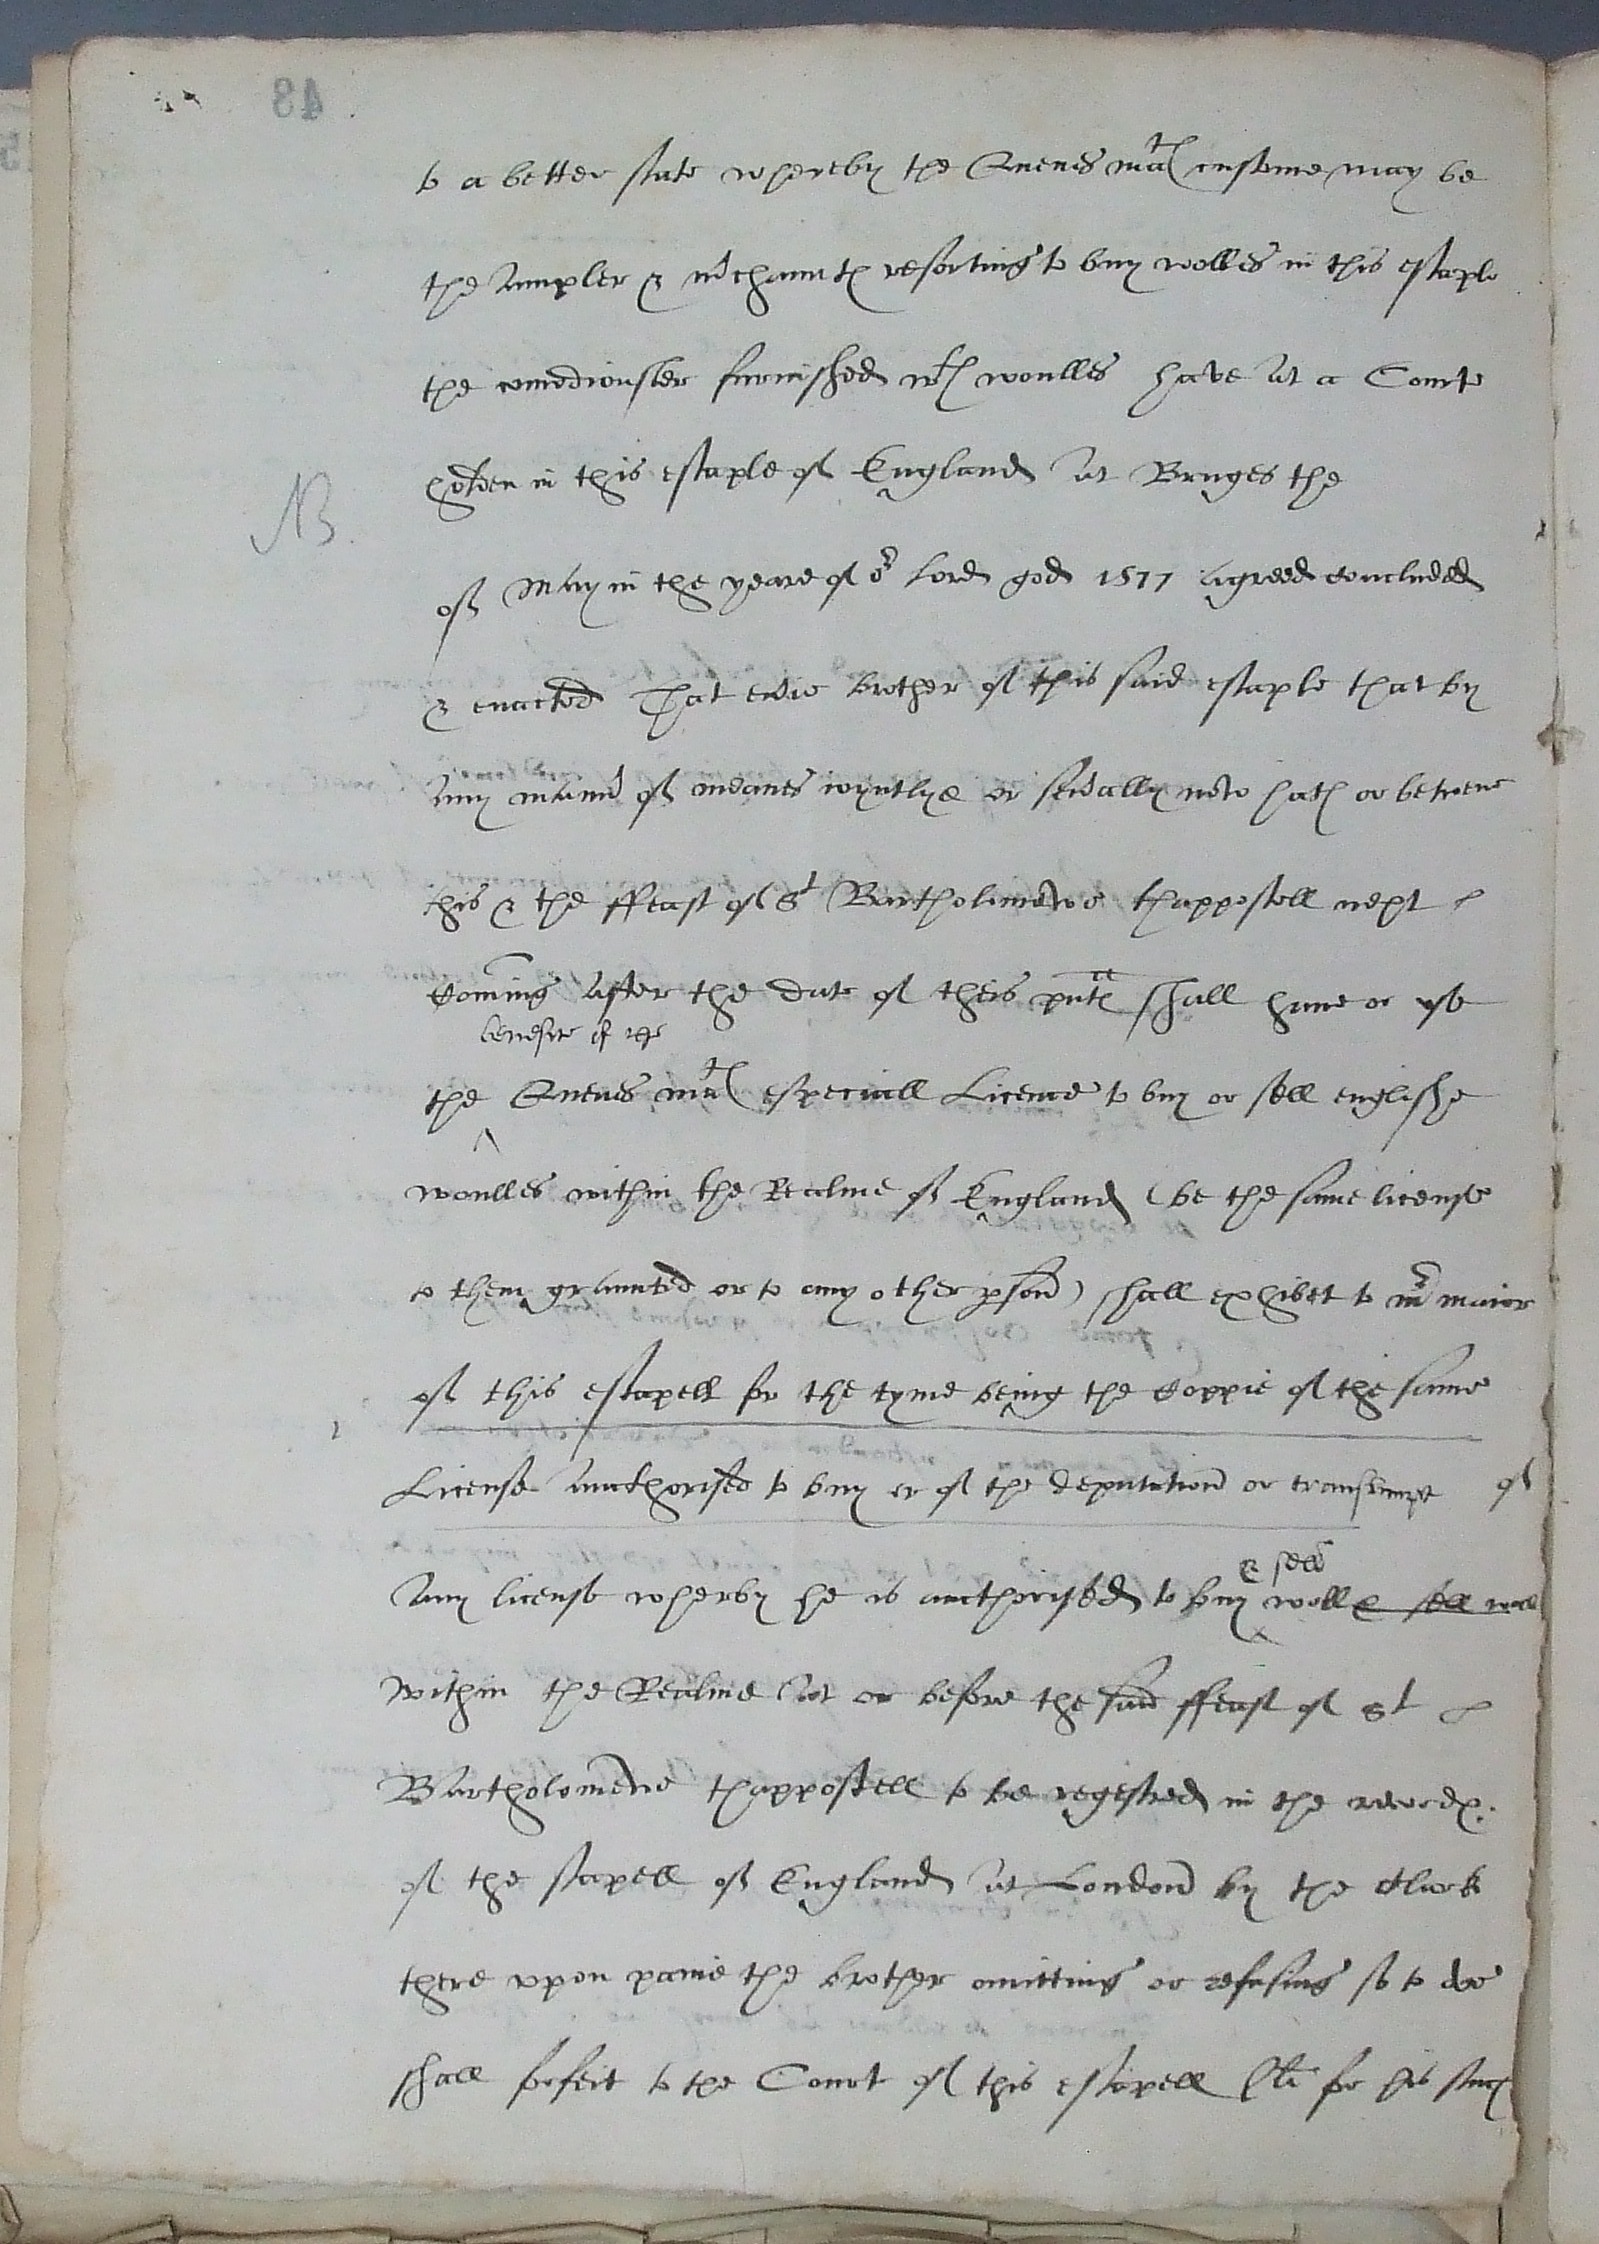 48
to a better state whereby the Quenes matꝭ custome may be
the ampler & mrchauntꝭ resorting to buy wolles in this estaple
the comodiouster furnished wth woulles have at a Courte
holden in this estaple of England at Bruges the
NB.
of May in the yeare of or Lord god 1577 agreed concluded
& enacted That evrie brother of this said estaple that by
any manr of meanes ioyntlye or sevrally now hath or betwene
this & the ffeast of St Bartholmewe thappostell next
Coming after the date of theis pntꝭ shall have or use
benefite of
the Quenes matꝭ especiall Licence to buy or sell englishe
woulles within the Realme of England (be the same license
to them graunted or to any other pson) shall exhibet to mr maior
of this estapell for the tyme being the Coppie of the same
License aucthorised to buy or of the deputation or transumpt of
& sell
any license wherby he is aucthorised to buy woll & sell woll
within the Realme at or before the said ffeast of St
Bartholomewe thappostell to be regestred in the recordꝭ
of the stapell of England at London by the Clark
there upon paine the brother omitting or refusing so to doe
shall forfeit to the Court of this estapell Cli for his